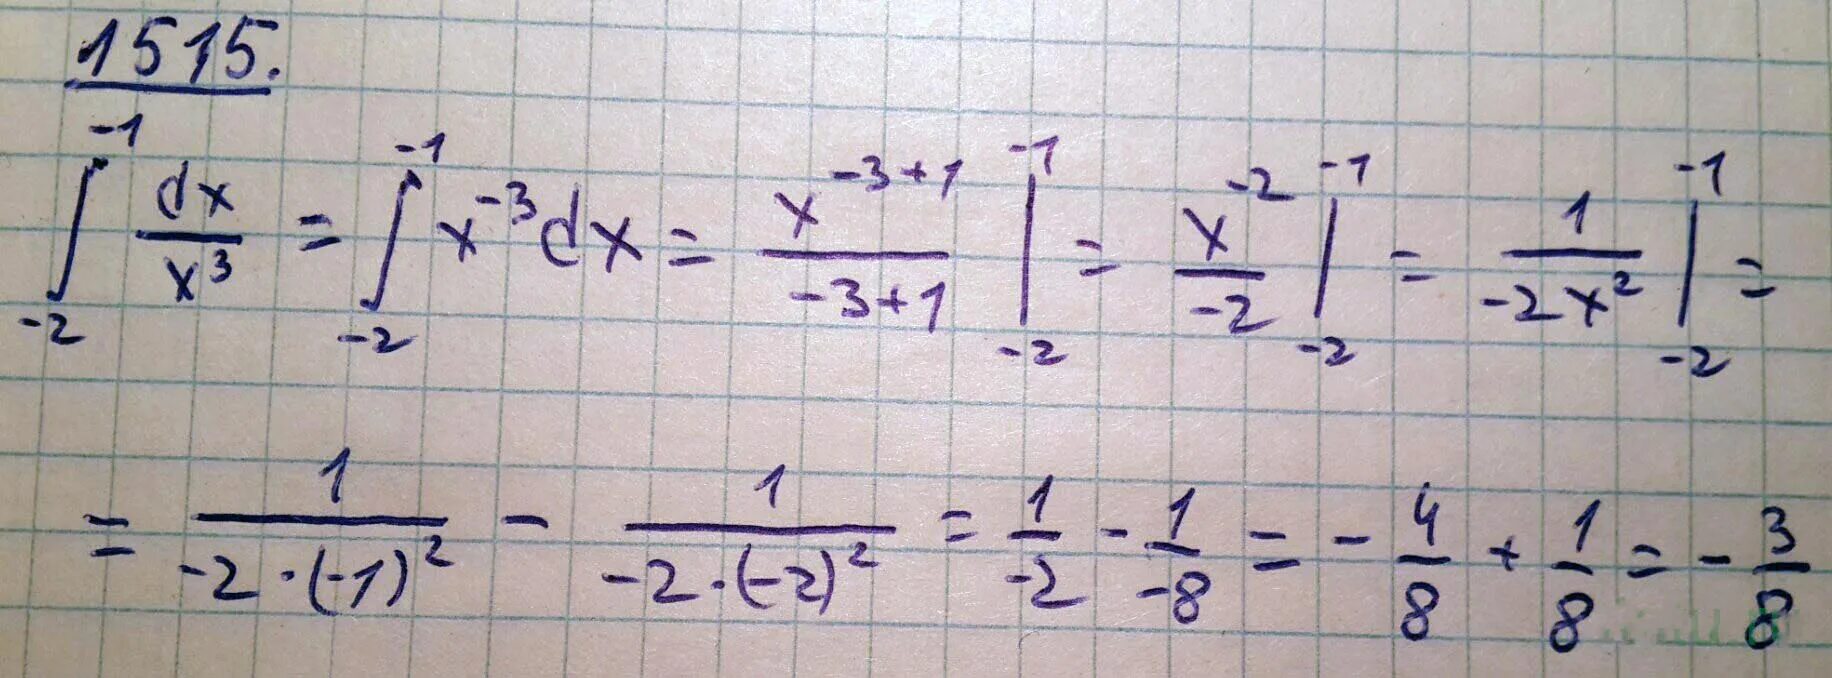 1515.
\int_{-2}^{-1} \frac{dx}{x^3} = \int_{-2}^{-1} x^{-3} dx = \frac{x^{-3+1}}{-3+1} \Big|_{-2}^{-1} = \frac{x^{-2}}{-2} \Big|_{-2}^{-1} = \frac{1}{-2x^2} \Big|_{-2}^{-1} =
= \frac{1}{-2 \cdot (-1)^2} - \frac{1}{-2 \cdot (-2)^2} = \frac{1}{-2} - \frac{1}{-8} = -\frac{4}{8} + \frac{1}{8} = -\frac{3}{8}